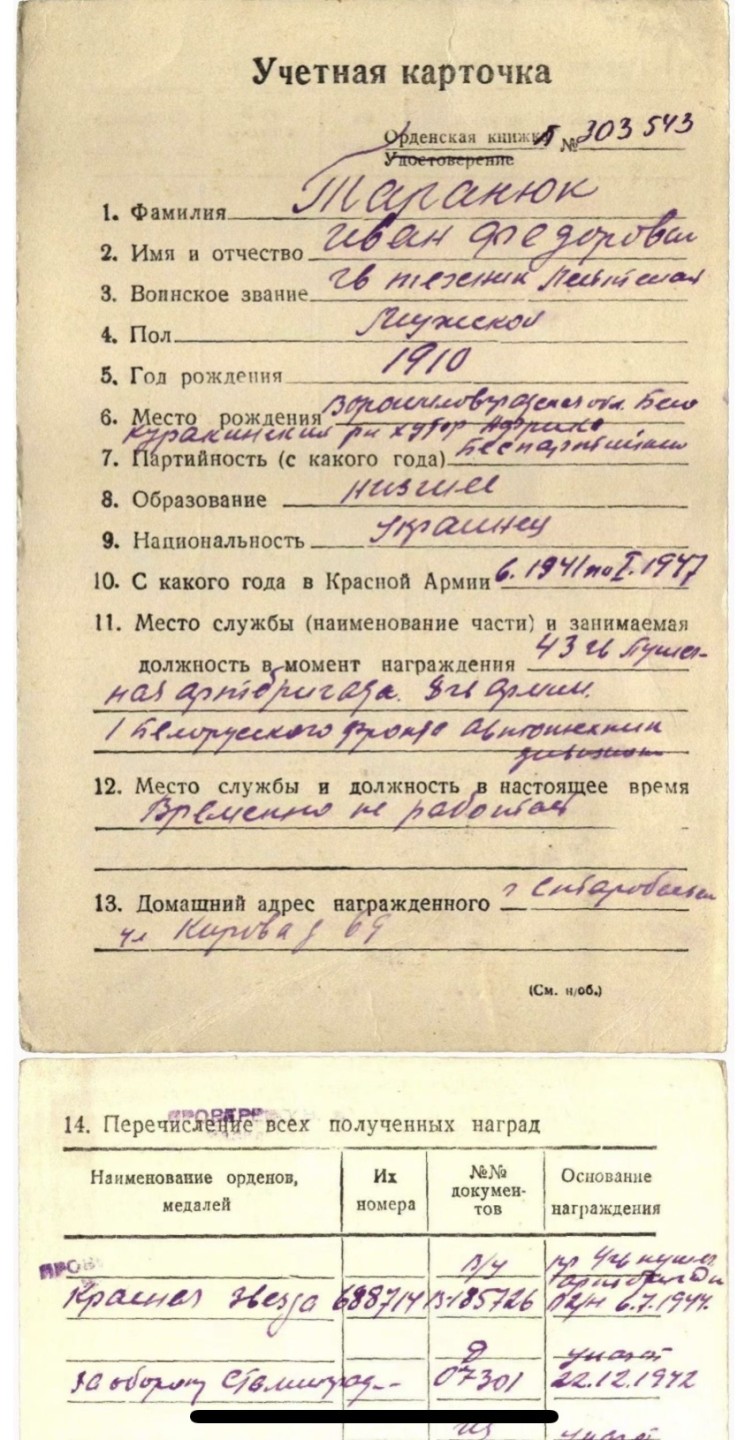 Учетная карточка
Орденская книжка
Удостоверение № 303543
1. Фамилия Таранюк
2. Имя и отчество Иван Федорович
3. Воинское звание гв техник Лейтенант
4. Пол Мужской
5. Год рождения 1910
6. Место рождения Ворошиловградская обл. Бело
Куракинский р-н хутор
7. Партийность (с какого года) Беспартийный
8. Образование низшее
9. Национальность украинец
10. С какого года в Красной Армии 6. 1941 по I. 1947
11. Место службы (наименование части) и занимаемая
должность в момент награждения 43 гв Пушеч-
ная артбригада. 8 гв армии.
1 Белорусского фронта автотехник
дивизиона
12. Место службы и должность в настоящее время
Временно не работает
13. Домашний адрес награжденного г Старобельск
ул Кирова д 69
(См. н/об.)
14. Перечисление всех полученных наград
Наименование орденов, медалей
Их номера
№№ докумен-тов
Основание награждения
в/у
пр
Красная Звезда 688714 185726 6.7.1944.
указ
За оборону Сталинград-- 07301 22.12.1942
указ